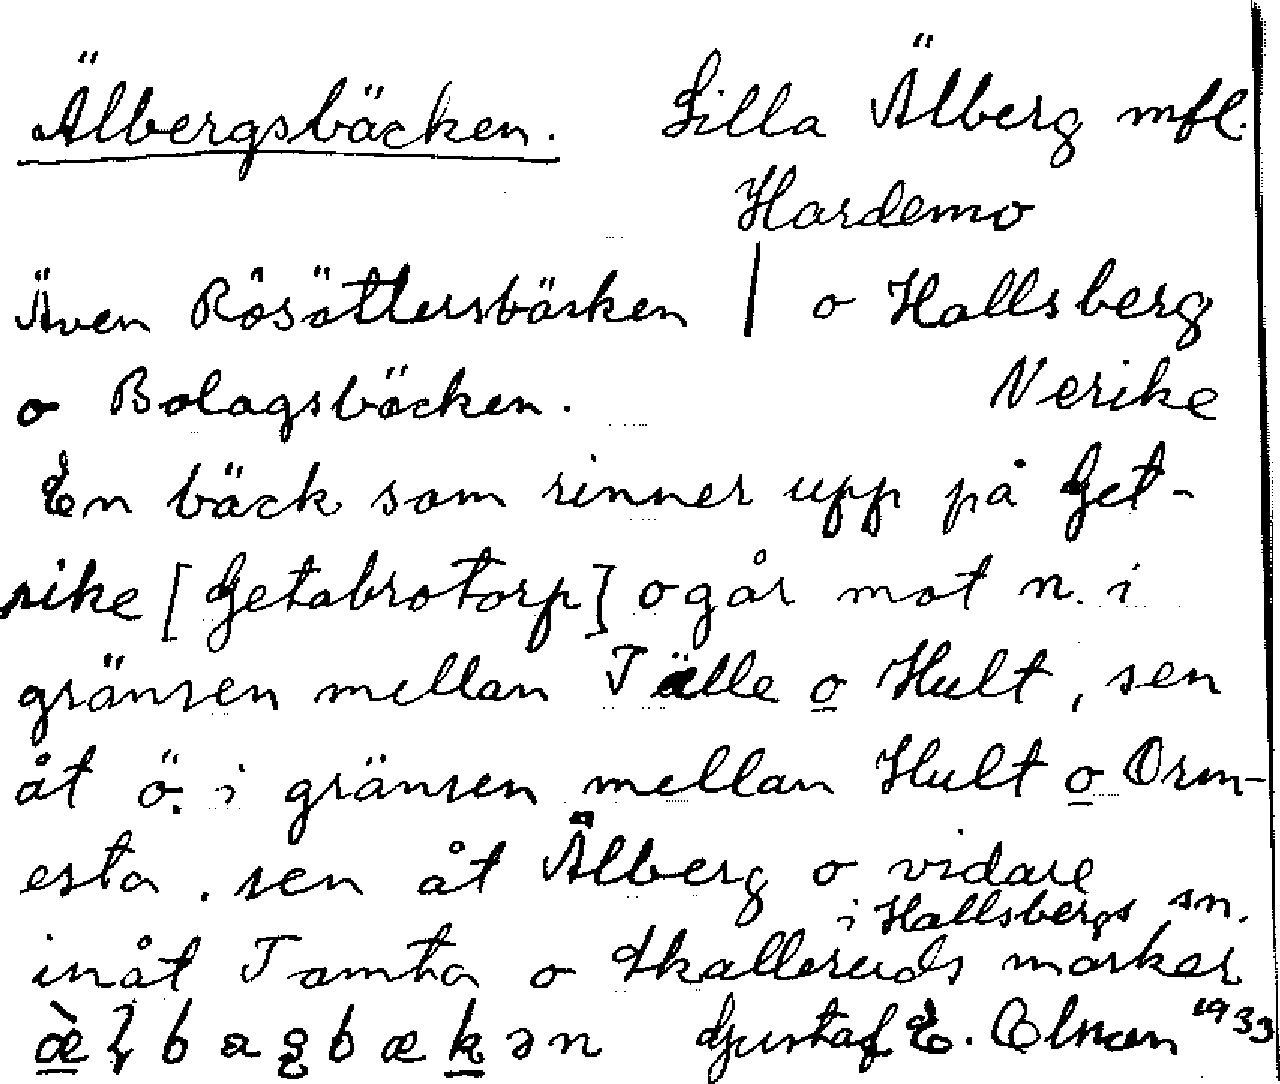 Älbergsbäcken. Lilla Älberg mfl.
Hardemo
Även Rösättersbäcken | o Hallsberg
o Bolagsbäcken. Nerike
En bäck som rinner upp på Get-
rike [Getabrotorp] o går mot n. i
gränsen mellan Tälle o Hult, sen
åt ö. i gränsen mellan Hult o Orm-
esta. sen åt Älberg o vidare
i Hallsbergs sn.
inåt Tamta o Skalleruds marker
Gustaf E. 1933